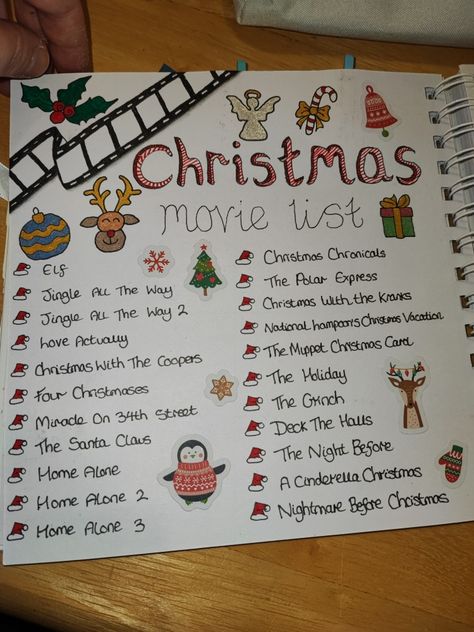 Christmas
movie list
Elf
Jingle All The Way
Jingle All The Way 2
Love Actually
Christmas With The Coopers
Four Christmases
Miracle On 34th Street
The Santa Claus
Home Alone
Home Alone 2
Home Alone 3
Christmas Chronicals
The Polar Express
Christmas With the Kranks
National Lampoon's Christmas Vacation
The Muppet Christmas Carol
The Holiday
The Grinch
Deck The Halls
The Night Before
A Cinderella Christmas
Nightmare Before Christmas